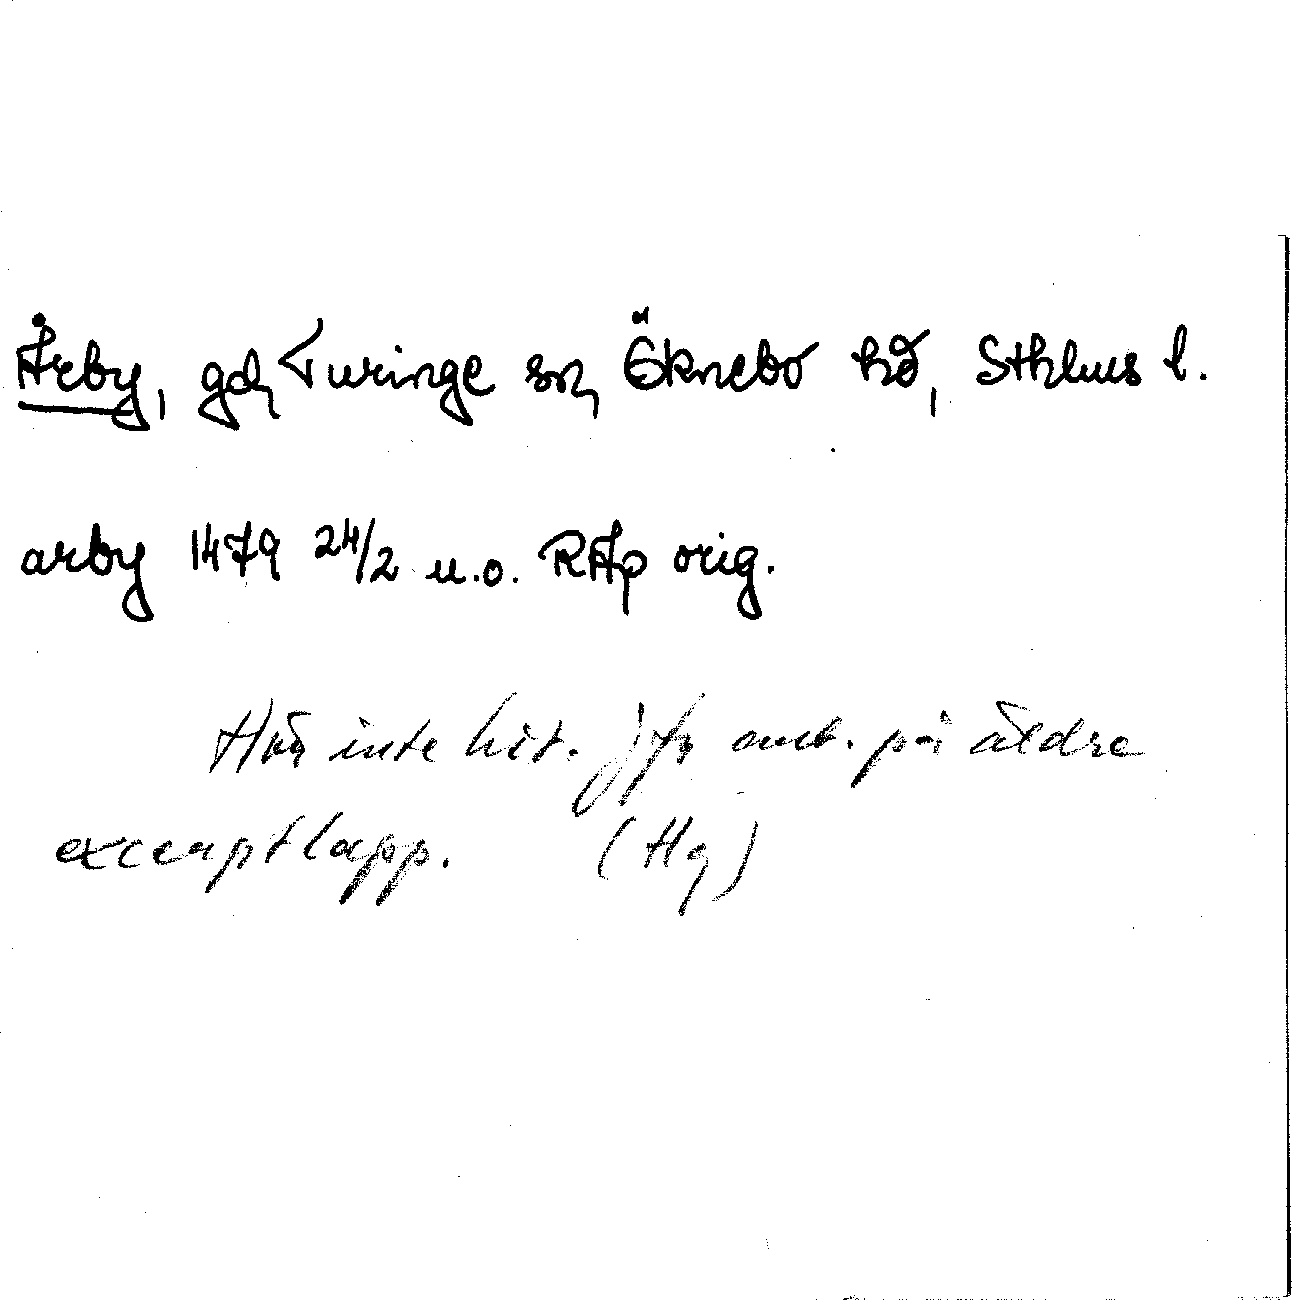 Årby, gd, Turinge sn, Öknebo hd, Sthlms l.
arby 1479 24/2 u.o. RAp orig.
Hör inte hit. Jfr ant. på äldre
excerptlapp. (Hg)